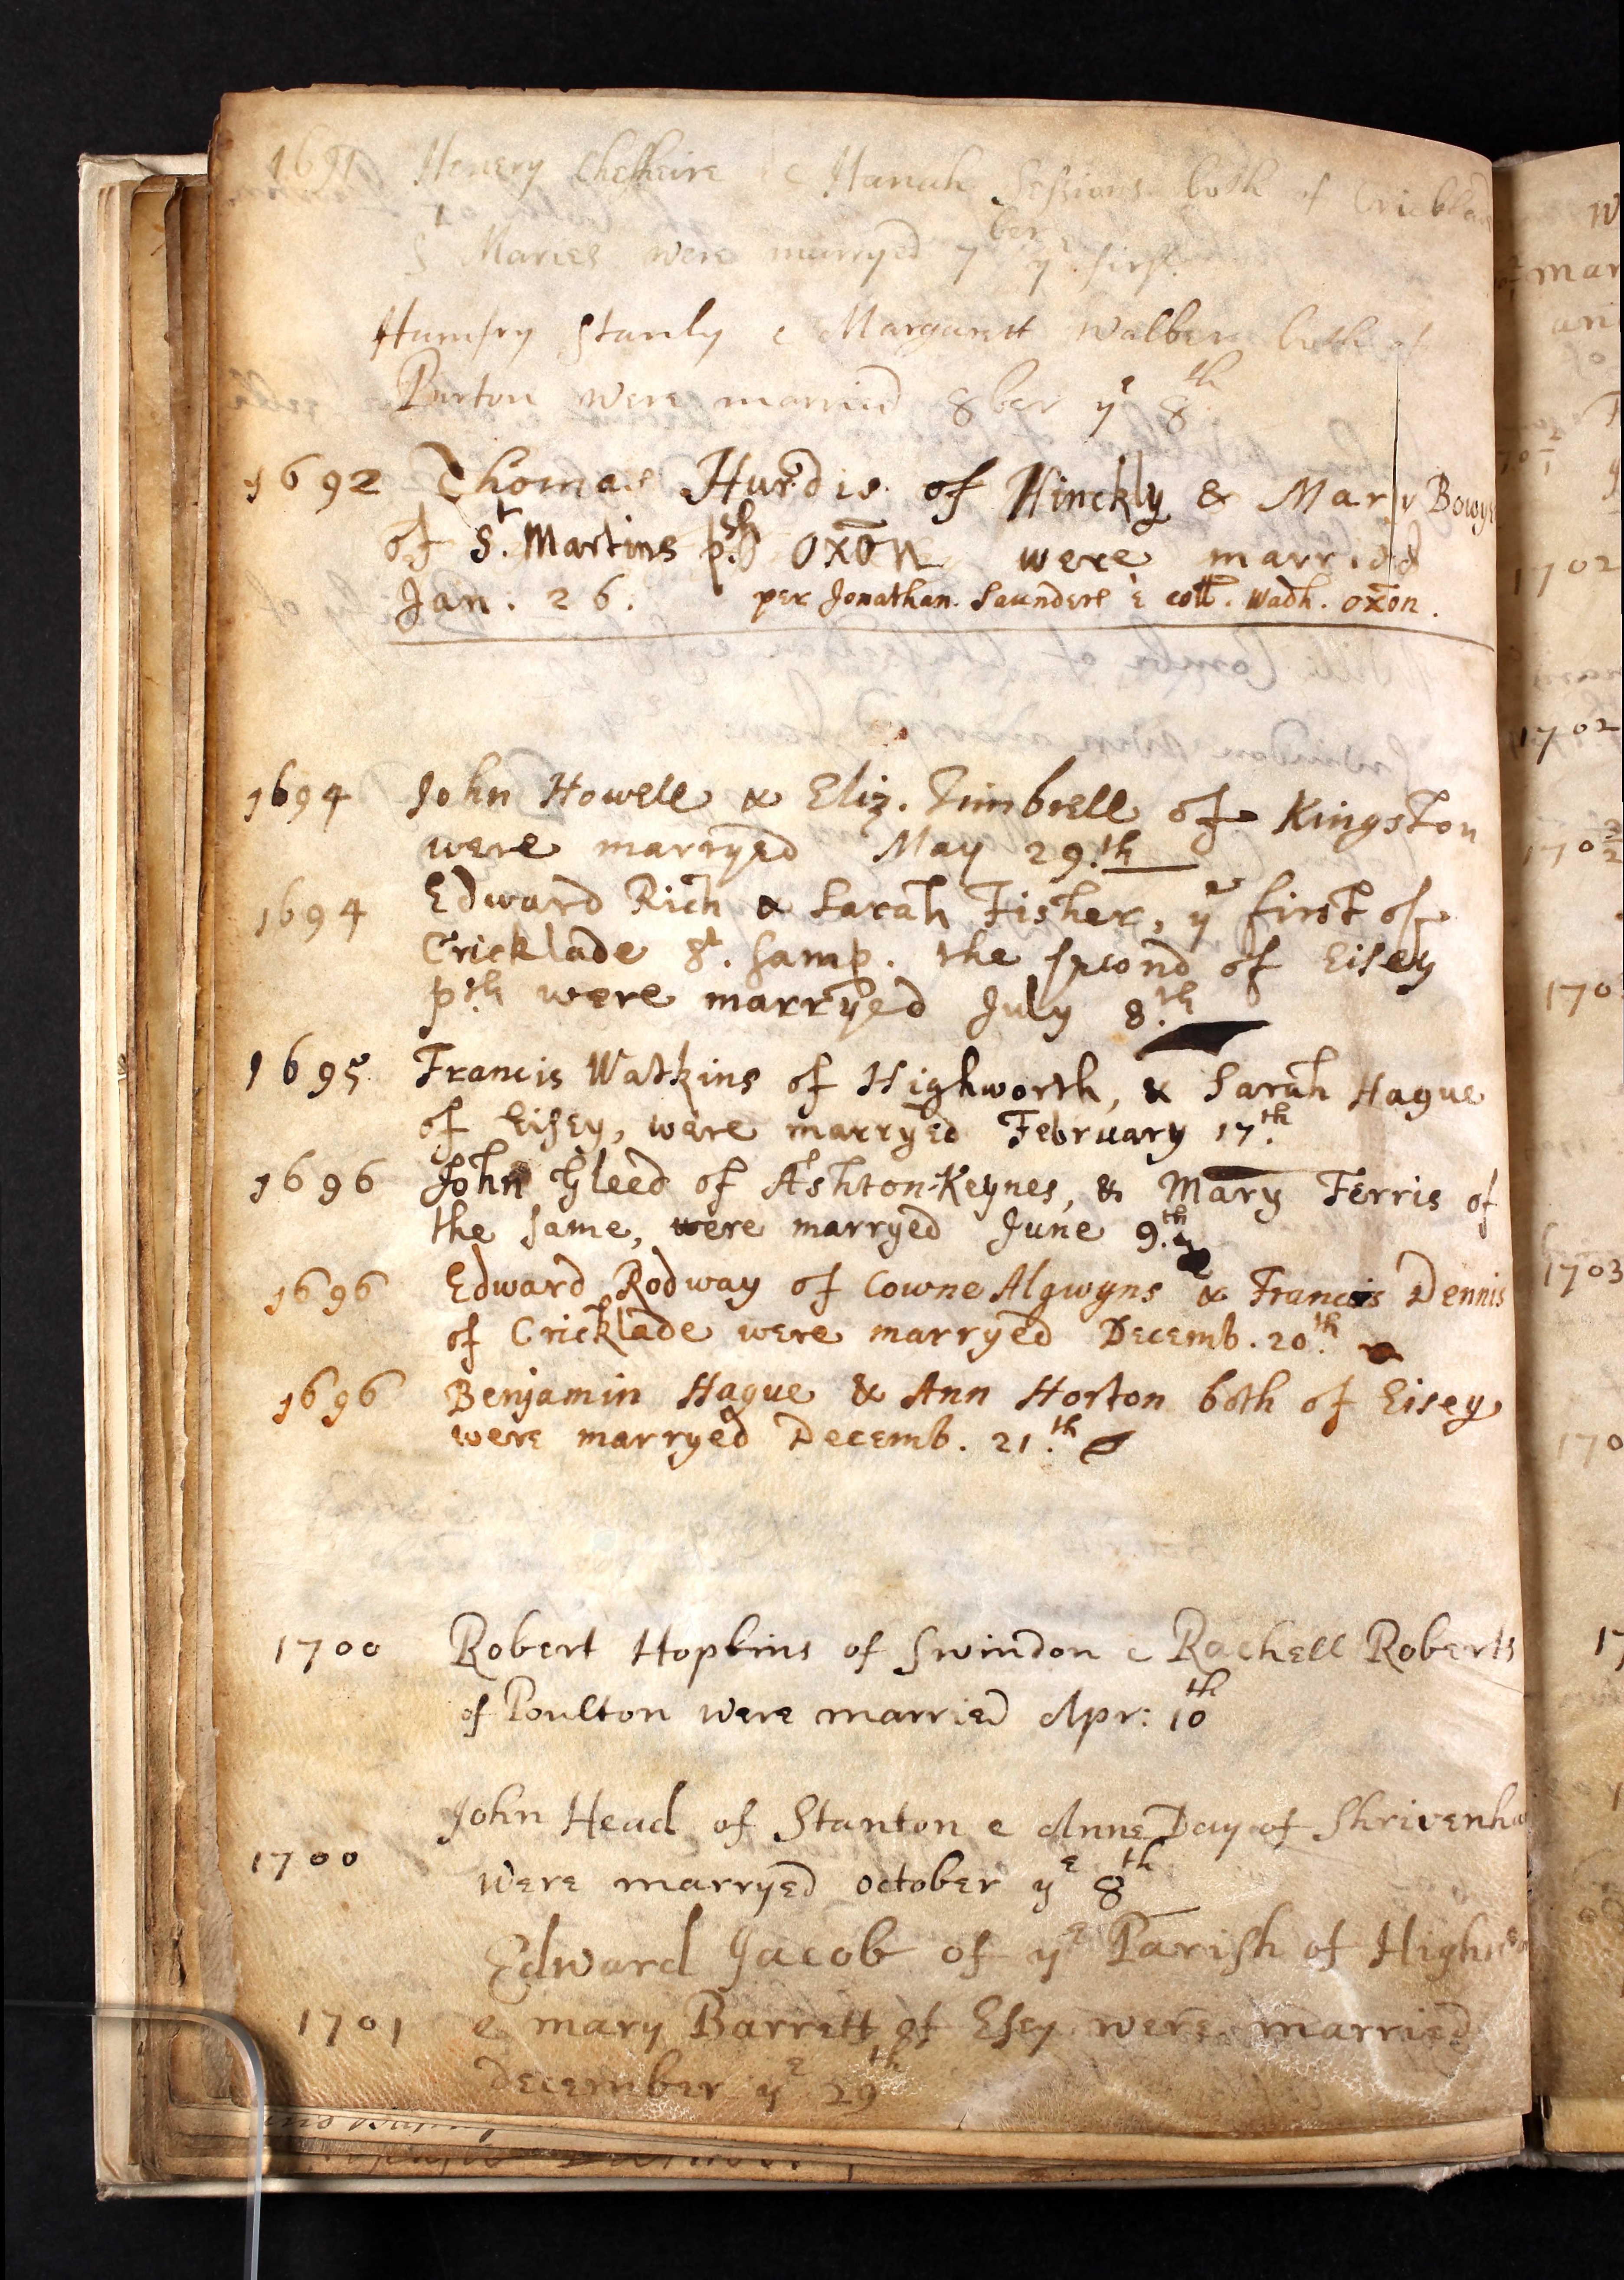 1691 Henery Chesheire e Hanah Sessions both of Cricklad
St Maries were marryed 7ber ye first
Humfry Stanly e Margarett Walber both of
Purton were married 8ber ye 8th
1692 Thomas Hurdis of Hinckly & Mary Bowye
of St. Martins psh OXON were married
Jan. 26. per Jonathan. Saunders è coll. Wadh. oxon.
1694 John Howell & Eliz. Timbrell of Kingston
were marryed May 29.th
1694 Edward Rich & Sarah Fisher, ye first of
Cricklade St. Samp. the second of Eisey
psh were marryed July 8.th
1695 Francis Watkins of Highworth, & Sarah Hague
of Eisey, were marryed February 17.th
1696 John Gleed of Ashton-Keynes, & Mary Ferris of
the same, were marryed June 9.th
1696 Edward Rodway of Cowne Algwyns & Francis Dennis
of Cricklade were marryed Decemb. 20.th
1696 Benjamin Hague & Ann Horton both of Eisey
were marryed Decemb. 21.th
1700 Robert Hopkins of Swindon e Rachell Roberts
of Poulton were married Apr: 10th
John Head of Stanton e Anne Day of Shrivenha
1700 were marryed october ye 8th
Edward Jacob of ye Parish of Highwo
1701 e mary Barrett of Esey were married
December ye 29th